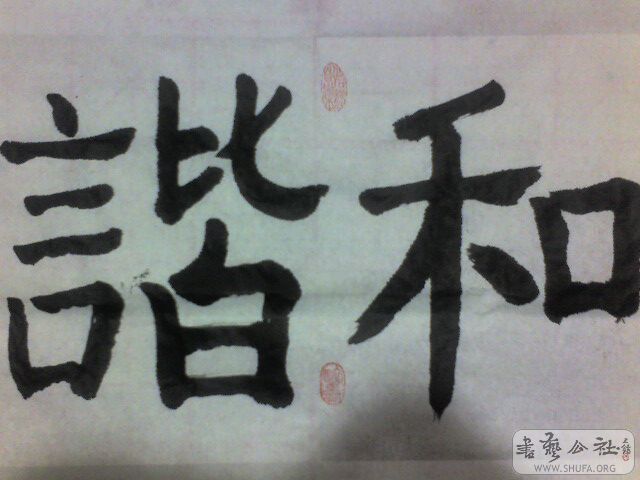 和諧
書藝公社
WWW.SHUFA.ORG